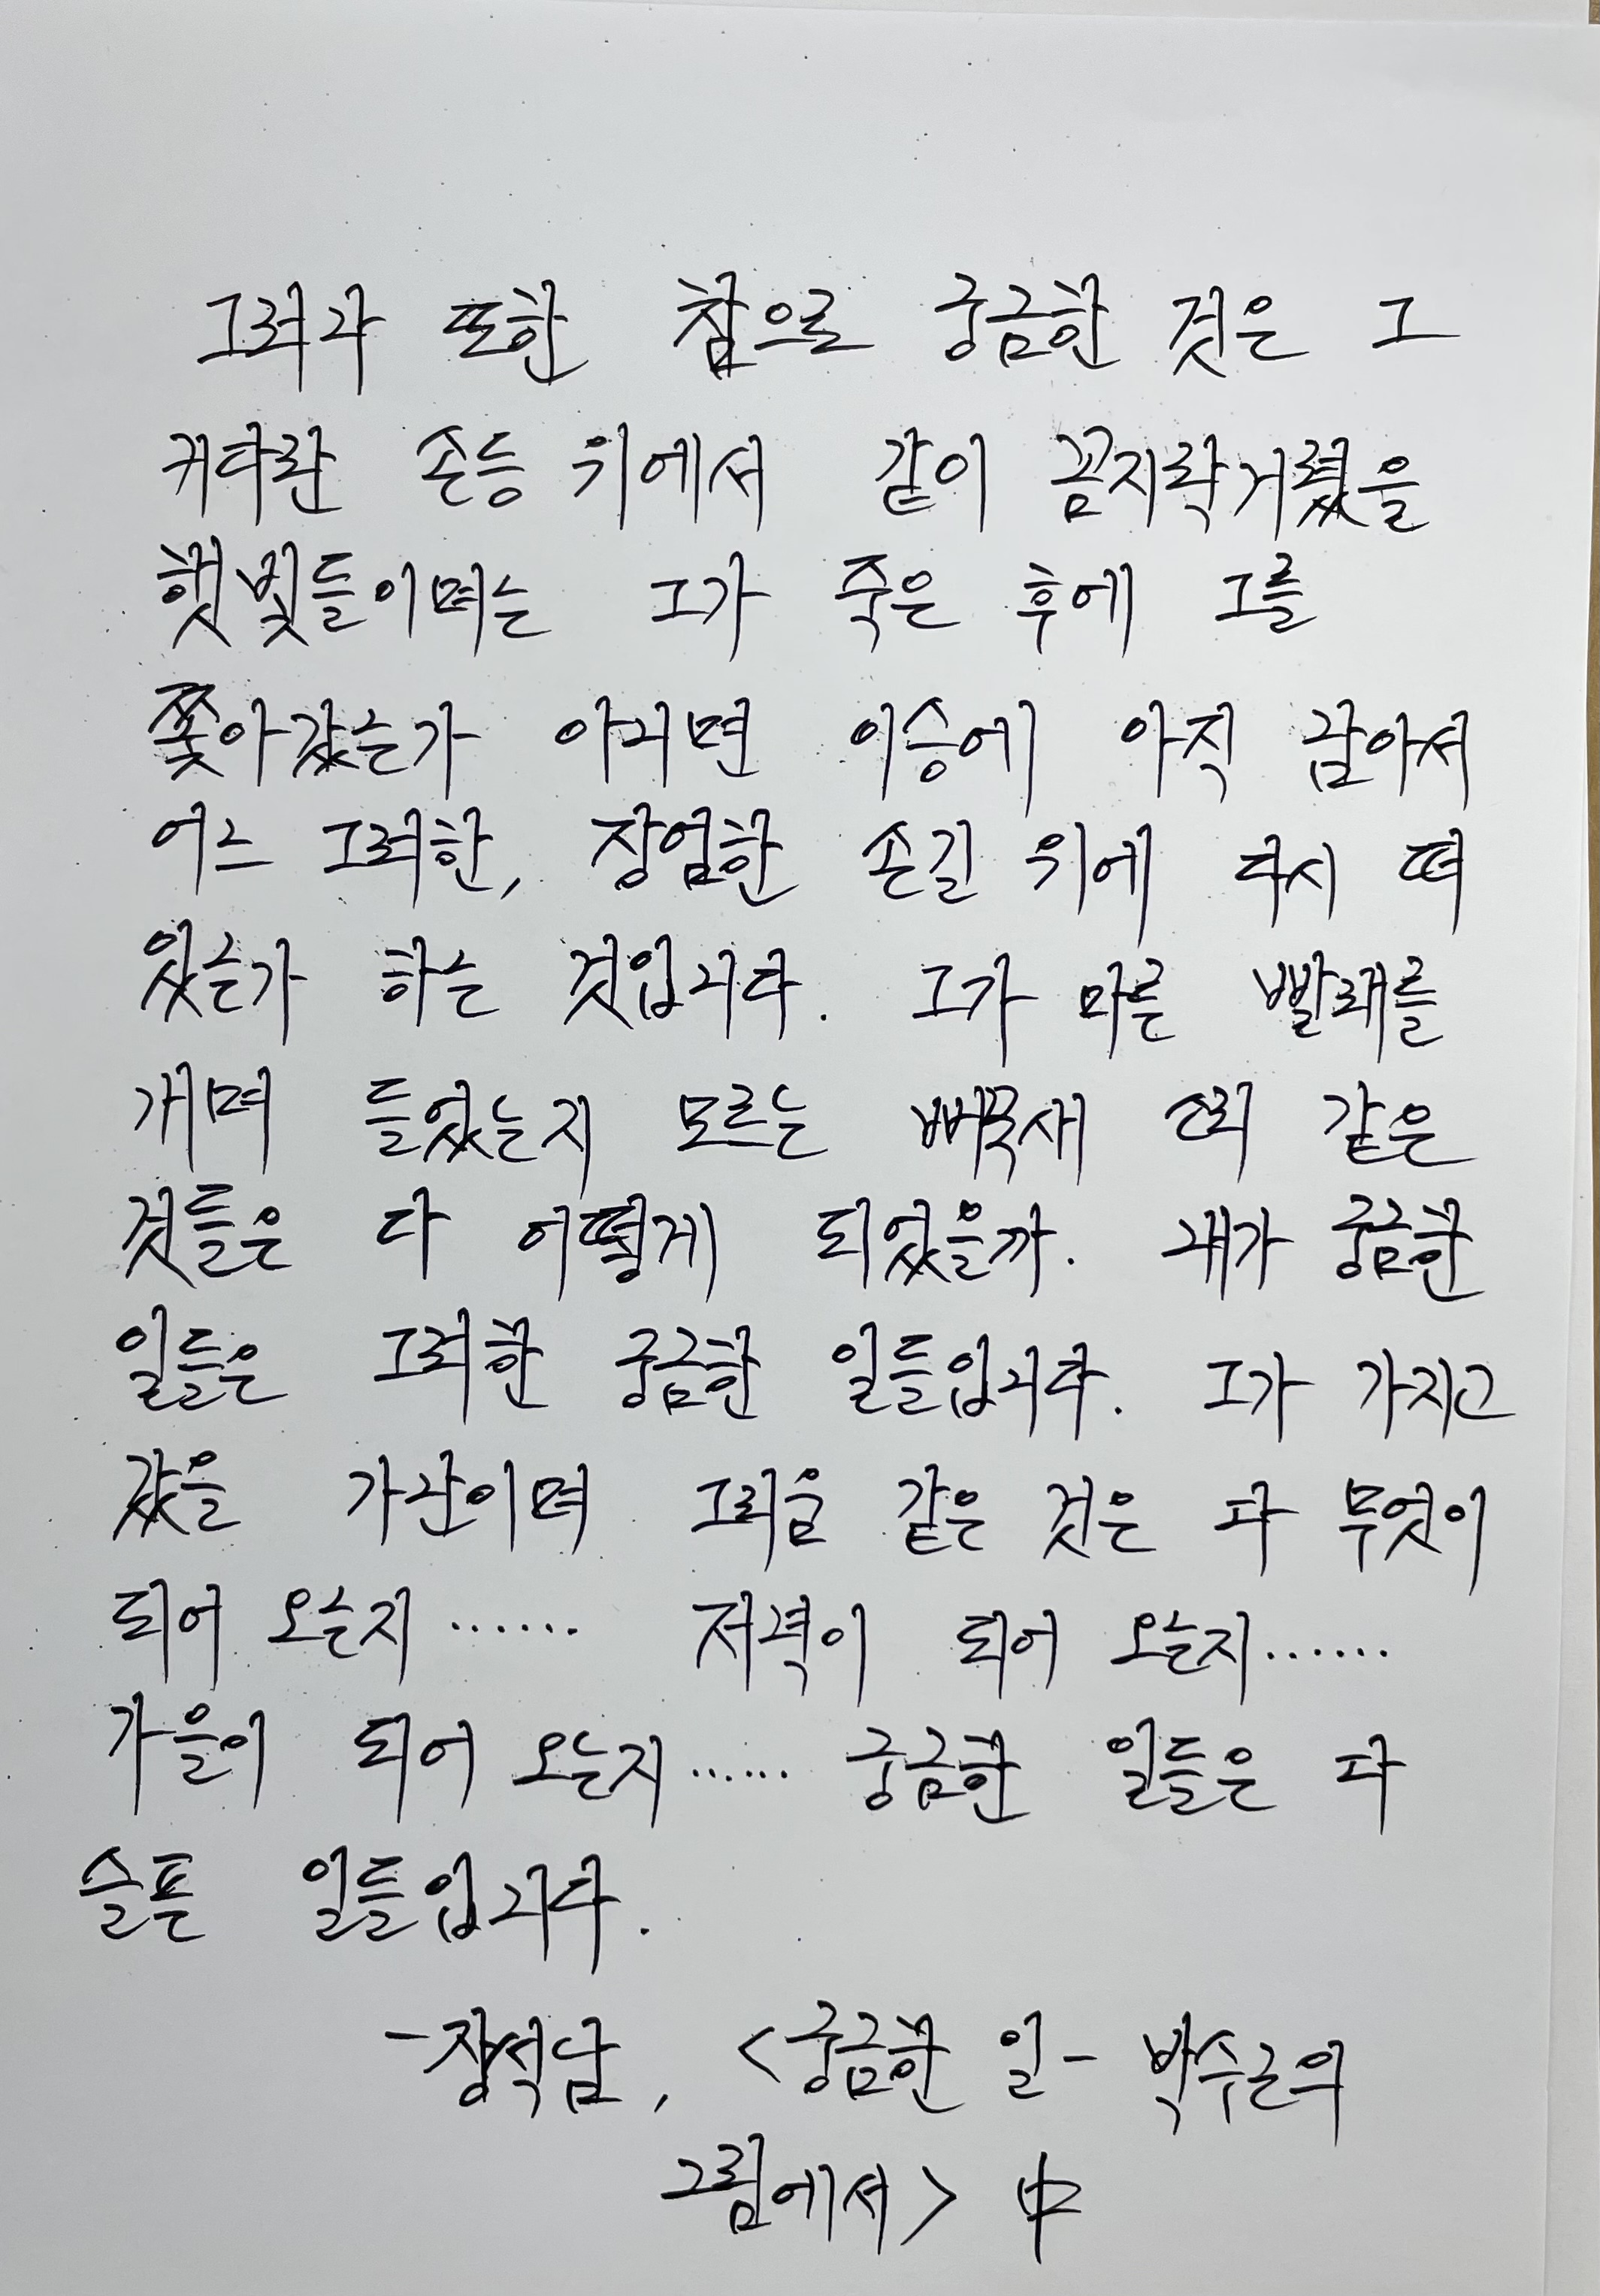 그러나 또한 참으로 궁금한 것은 그
커다란 손등 위에서 같이 꼼지락거렸을
햇빛들이며는 그가 죽은 후에 그를
쫓아갔는가 아니면 이승에 아직 남아서
어느 그러한, 장엄한 손길 위에 다시 떠
있는가 하는 것입니다. 그가 마른 빨래를
개며 들었을지 모르는 뻐꾹새 소리 같은
것들은 다 어떻게 되었을까. 내가 궁금한
일들은 그러한 궁금한 일들입니다. 그가 가지고
갔을 가난이며 그리움 같은 것은 다 무엇이
되어 오는지…… 저녁이 되어 오는지……
가을이 되어 오는지…… 궁금한 일들은 다
슬픈 일들입니다.
-장석남, <궁금한 일- 박수근의
그림에서> 中